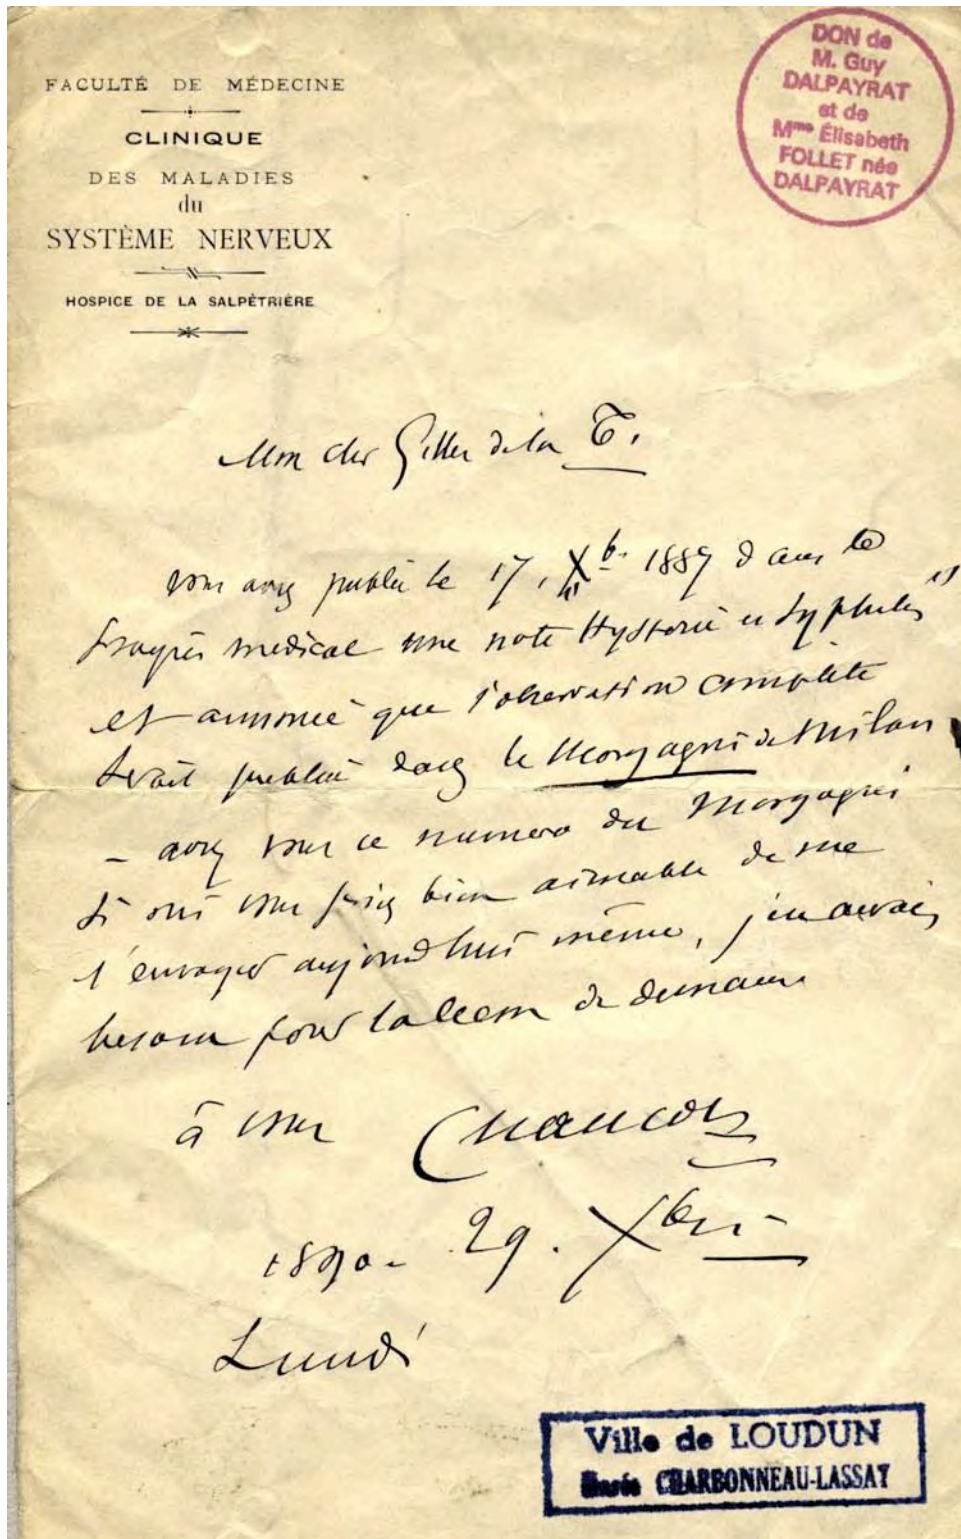 FACULTÉ DE MÉDECINE
CLINIQUE
DES MALADIES
du
SYSTÈME NERVEUX
HOSPICE DE LA SALPÊTRIÈRE
DON de
M. Guy
DALPAYRAT
et de
Mme Élisabeth
FOLLET née
DALPAYRAT
Mon cher Gilles de la T.
vous avez publié le 17, Xb. 1887 dans le
Progrès medical une note Hysterie et Syphilis
et annoncé que l'observation complète
serait publiée dans le Morgagni de Milan
– avez vous ce numero du Morgagni
Si oui vous seriez bien aimable de me
l'envoyer aujourd'hui même, j'en aurais
besoin pour la lecon de demain
à vous Charcot
1890 - 29. Xbre
Lundi
Ville de LOUDUN
Musée CHARBONNEAU-LASSAY